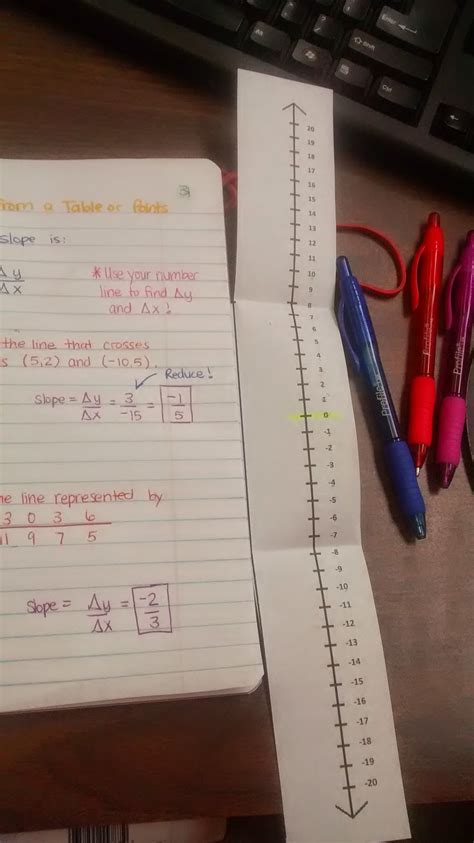 3
from a Table or Points
slope is:
Δy
Δx
* Use your number
line to find Δy
and Δx!
the line that crosses
s (5,2) and (-10,5).
Reduce!
Slope = Δy/Δx = 3/-15 = -1/5
he line represented by
3 0 3 6
11 9 7 5
Slope = Δy/Δx = -2/3
20
19
18
17
16
15
14
13
12
11
10
9
8
7
6
5
4
3
2
1
0
-1
-2
-3
-4
-5
-6
-7
-8
-9
-10
-11
-12
-13
-14
-15
-16
-17
-18
-19
-20
Shift
Ctrl
Profile
Profile
Profile